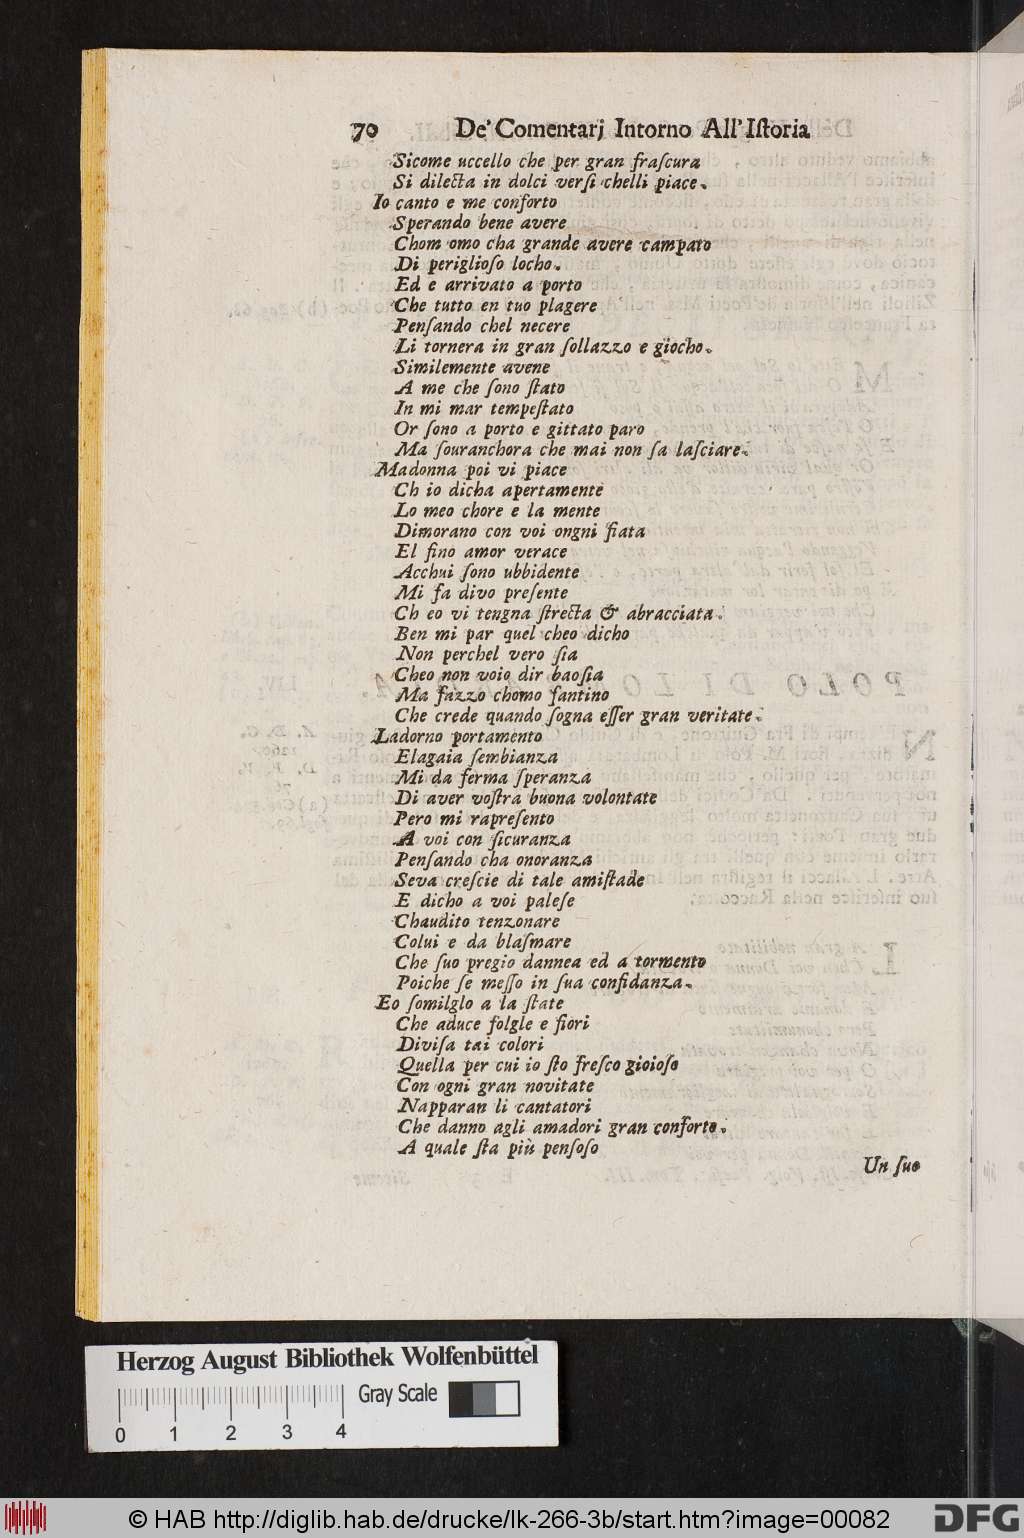 70 De' Comentarj Intorno All' Iſtoria
Sicome uccello che per gran fraſcura
Si dilecta in dolci verſi chelli piace.
Io canto e me conforto
Sperando bene avere
Chom omo cha grande avere campato
Di periglioſo locho.
Ed e arrivato a porto
Che tutto en tuo plagere
Penſando chel necere
Li tornera in gran ſollazzo e giocho.
Similemente avene
A me che ſono ſtato
In mi mar tempeſtato
Or ſono a porto e gittato paro
Ma ſouranchora che mai non ſa laſciare.
Madonna poi vi piace
Ch io dicha apertamente
Lo meo chore e la mente
Dimorano con voi ongni fiata
El fino amor verace
Acchui ſono ubbidente
Mi fa divo preſente
Ch eo vi tengna ſtrecta & abracciata.
Ben mi par quel cheo dicho
Non perchel vero ſia
Cheo non voio dir baoſia
Ma fazzo chomo fantino
Che crede quando ſogna eſſer gran veritate.
Ladorno portamento
Elagaia ſembianza
Mi da ferma ſperanza
Di aver voſtra buona volontate
Pero mi rapreſento
A voi con ſicuranza
Penſando cha onoranza
Seva creſcie di tale amiſtade
E dicho a voi paleſe
Chaudito tenzonare
Colui e da blaſmare
Che ſuo pregio dannea ed a tormento
Poiche ſe meſſo in ſua confidanza.
Eo ſomilglo a la ſtate
Che aduce folgle e fiori
Diviſa tai colori
Quella per cui io ſto freſco gioioſo
Con ogni gran novitate
Napparan li cantatori
Che danno agli amadori gran conforto.
A quale ſta più penſoſo
Un ſuo
Herzog August Bibliothek Wolfenbüttel
Gray Scale
0 1 2 3 4
© HAB http://diglib.hab.de/drucke/lk-266-3b/start.htm?image=00082
DFG